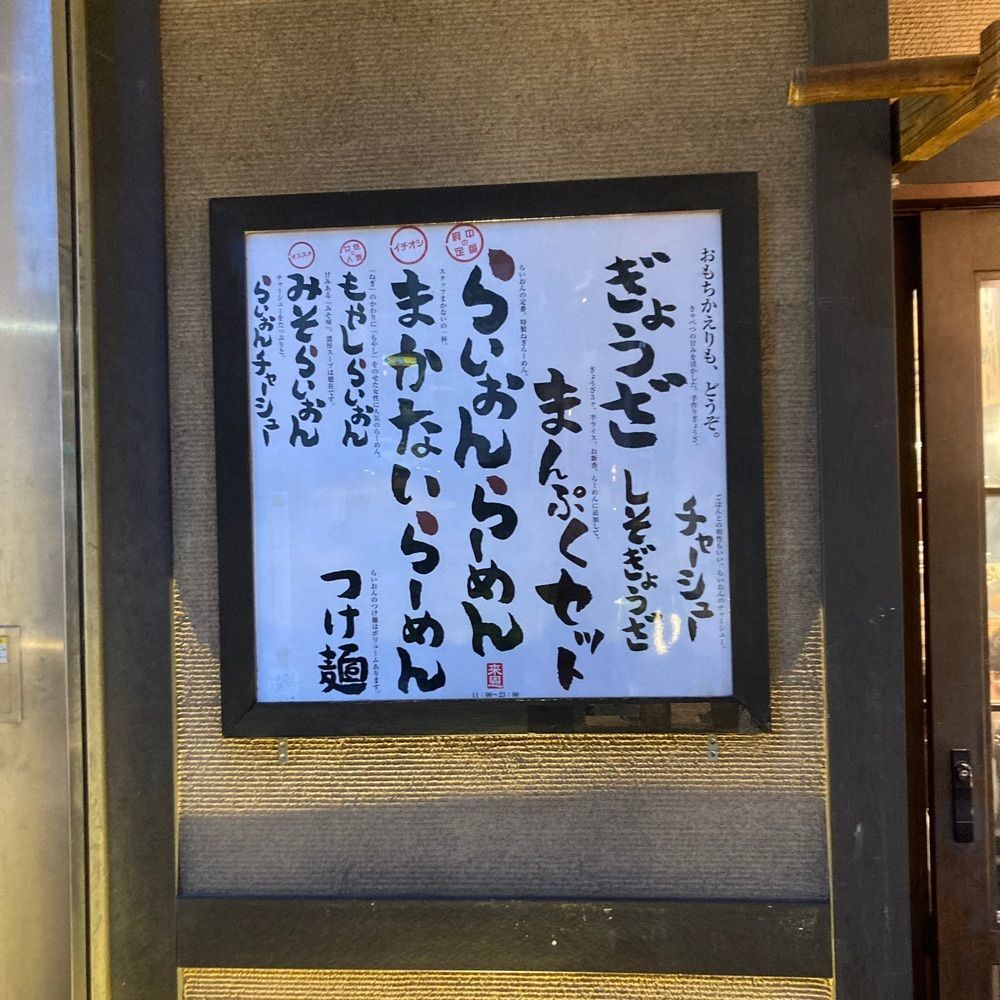 おもちかえりも、どうぞ。
ごはんとの相性もいい、らいおんのチャーシュー。
チャーシュー
きゃべつの甘みを活かした、手作りぎょうざ。
ぎょうざ
しそぎょうざ
ぎょうざ3ヶ、半ライス、お新香、らーめんに追加して。
まんぷくセット
らいおんの定番、特製ねぎらーめん。
府中の定番
らいおんらーめん
来恩
11:00〜23:00
スタッフまかないの一杯。
イチオシ
まかないらーめん
「ねぎ」のかわりに「もやし」をのせた女性に人気のらーめん。
女性に人気
もやしらいおん
らいおんのつけ麺はボリュームあります。
つけ麺
甘みある「みそ味」。濃厚スープは健在です。
オススメ
みそらいおん
チャーシューをたっぷりと。
らいおんチャーシュー